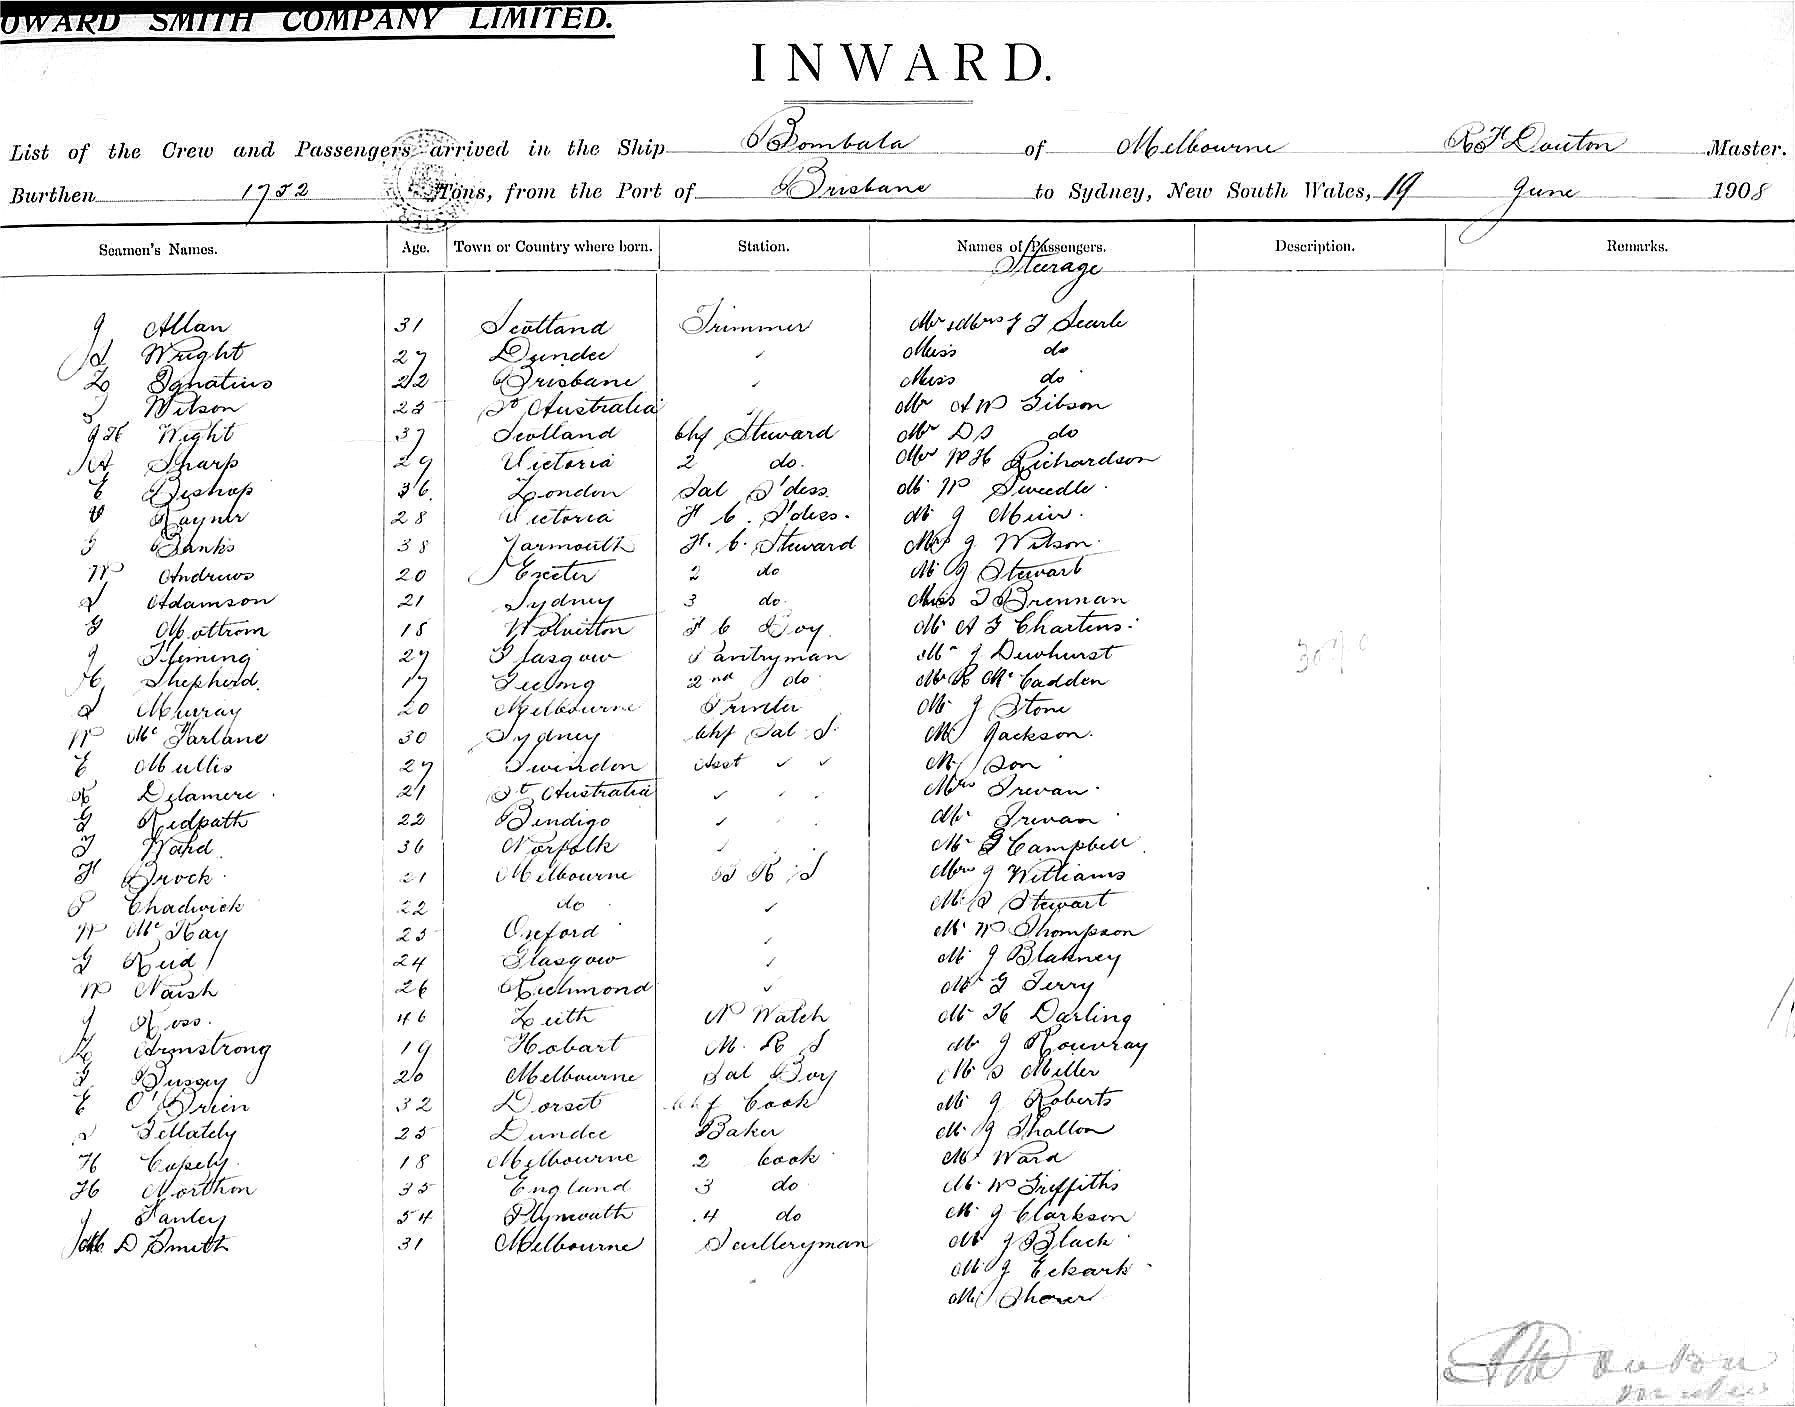 OWARD SMITH COMPANY LIMITED.
INWARD.
List of the Crew and Passengers arrived in the Ship Bombala of Melbourne R F Douton Master.
Burthen 1752 Tons, from the Port of Brisbane to Sydney, New South Wales, 19 June 1908
Seamen's Names. Age. Town or Country where born. Station. Names of Passengers. Description. Remarks.
Steerage
J Allan 31 Scotland Trimmer Mr & Mrs J T Searle
Wright 27 Dundee " Miss do
L Ignatius 22 Brisbane " Miss do
J Wilson 25 Sth Australia " Mr A W Gibson
J H Wight 37 Scotland Chf Steward Mr D S do
A Sharp 29 Victoria 2 do. Mr W H Richardson
E Bishop 36. London Sal S'dess. Mr W Sweedle.
Rayner 28 Victoria F C. S'dess. Mr J Muir.
J Banks 38 Yarmouth F. C. Steward Mrs J Wilson.
W Andrews 20 Exeter 2 do Mr J Stewart
Adamson 21 Sydney 3 do. Miss J Brennan
G Mottrom 18 Wolverton F C Boy. Mr A F Chartens.
J Fleming 27 Glasgow Pantryman Mr J Dewhurst
H Shepherd. 17 Geelong 2nd do Mr R McCadden
Murray 20 Melbourne Printer Mr J Stone
W McFarlane 30 Sydney Chf Sal S. Mr Jackson.
E Mullis 27 Swindon Asst " " Mr Son
Delamere. 21 Sth Australia " Mrs Trevan.
G Redpath 22 Bendigo " Mr Trevan
Ward. 36 Norfolk " Mr G Campbell.
H Brock. 21 Melbourne B R S Mrs J Williams
Chadwick 22 do " Mr Stewart
W McKay 25 Oxford " Mr W Thompson
G Reid 24 Glasgow " Mr J Blakney
W Naish 26 Richmond " Mr G Terry
J Ross. 46 Leith N Watch Mr H Darling
Armstrong 19 Hobart M. R S Mr J Rouvray
G Bussey 20 Melbourne Sal Boy Mr S Miller
E O'Brien 32 Dorset Chf Cook Mr J Roberts
Gellately 25 Dundee Baker Mr J Thallon
H Capely. 18 Melbourne 2 Cook Mr Ward
H Northon 35 England 3 do Mr W Griffiths
54 Plymouth 4 do Mr J Clarkson
D Smith 31 Melbourne Sculleryman Mr J Black
Mr J Eckark
Mr